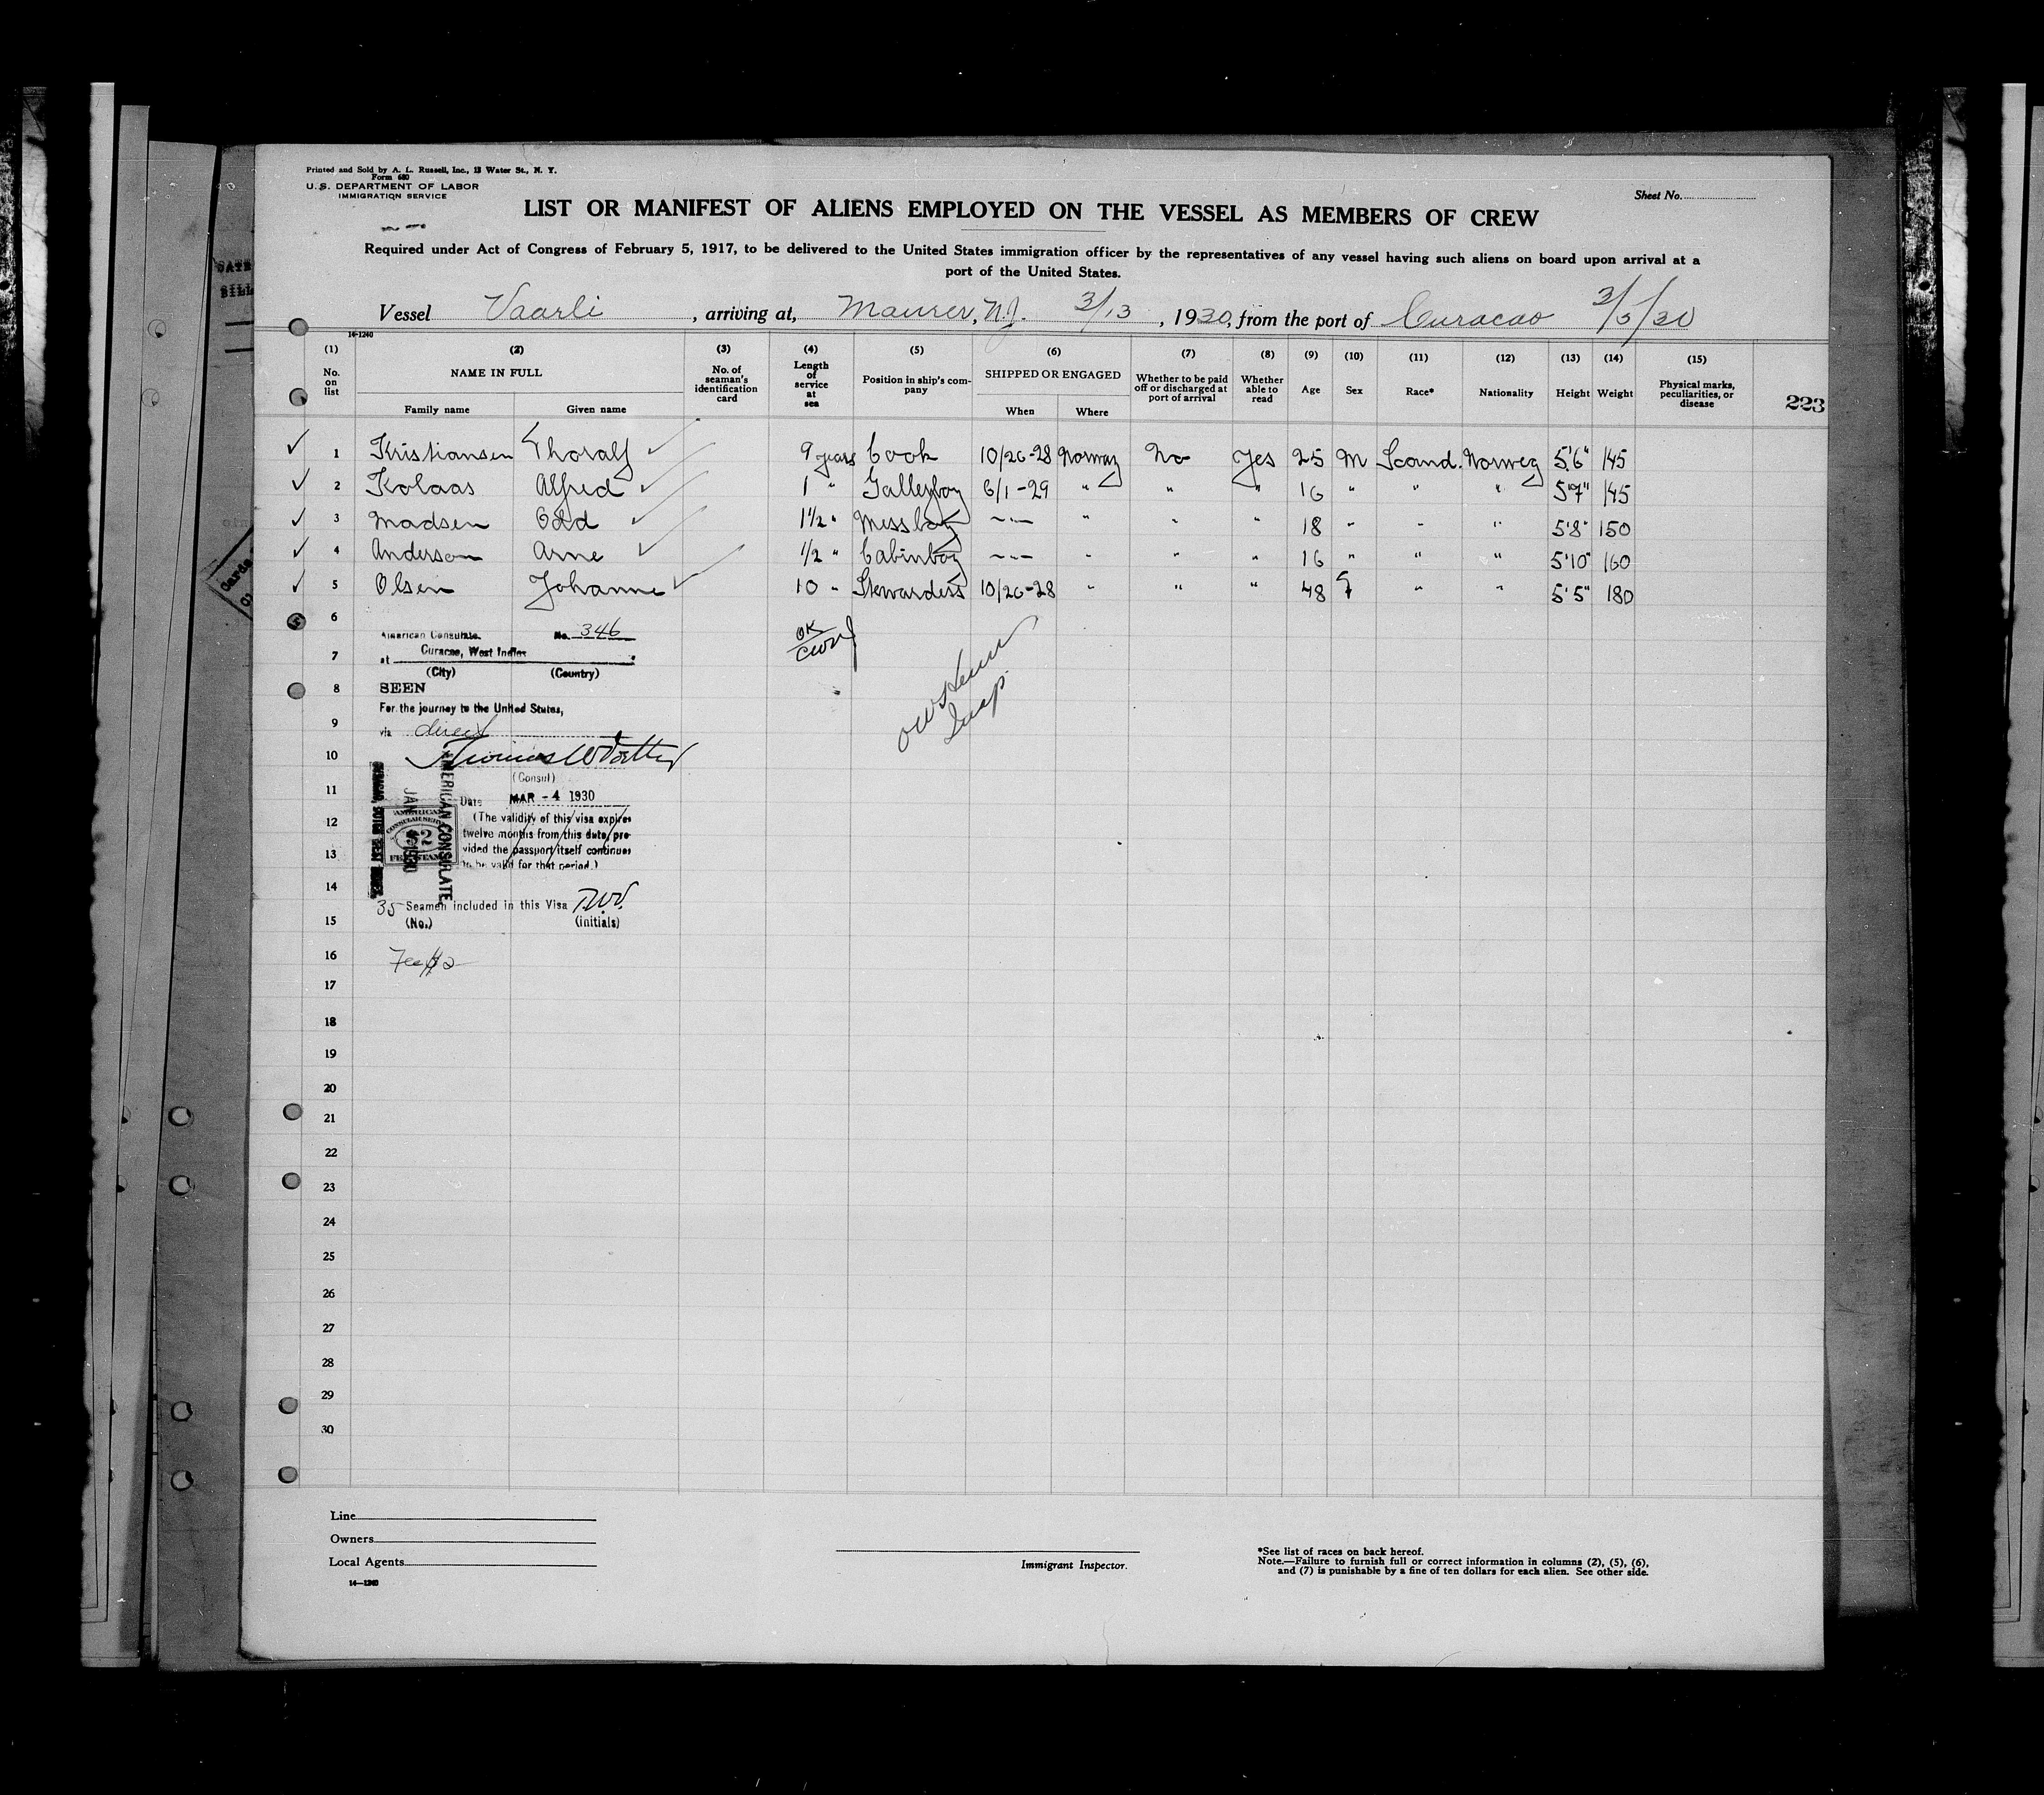 Printed and Sold by A. L. Russell, Inc., 13 Water St., N. Y.
Form 680
U. S. DEPARTMENT OF LABOR
IMMIGRATION SERVICE
Sheet No.
LIST OR MANIFEST OF ALIENS EMPLOYED ON THE VESSEL AS MEMBERS OF CREW
Required under Act of Congress of February 5, 1917, to be delivered to the United States immigration officer by the representatives of any vessel having such aliens on board upon arrival at a
port of the United States.
Vessel Vaarli, arriving at, Maurer, N.J. 3/13, 1930, from the port of Curacao 3/5/30
14-1240
(1) (2) (3) (4) (5) (6) (7) (8) (9) (10) (11) (12) (13) (14) (15)
No. on list NAME IN FULL Family name Given name No. of seaman's identification card Length of service at sea Position in ship's company SHIPPED OR ENGAGED When Where Whether to be paid off or discharged at port of arrival Whether able to read Age Sex Race* Nationality Height Weight Physical marks, peculiarities, or disease
223
1 Kristiansen Thoralf 9 years Cook 10/26-28 Norway No Yes 25 M Scand. Norweg 5'6" 145
2 Kolaas Alfred 1 " Galleyboy 6/1-29 " " " 16 " " " 5'7" 145
3 Madsen Odd 1 1/2 " Messboy —"— " " " 18 " " " 5'8" 150
4 Anderson Arne 1/2 " Cabinboy —"— " " " 16 " " " 5'10" 160
5 Olsen Johanne 10 " Stewardess 10/26-28 " " " 48 F " " 5'5" 180
6
American Consulate No. 346
7
at Curacao, West Indies
(City) (Country)
OK
8
SEEN
For the journey to the United States,
9
via direct
10
(Consul)
11
Date MAR - 4 1930
12
(The validity of this visa expires
twelve months from this date, pro-
13
vided the passport itself continues
to be valid for that period.)
AMERICAN CONSULATE
AMERICAN
CONSULAR SERVICE
$2
FEE STAMP
14
35 Seamen included in this Visa
15
(No.) (initials)
16
Fee $2
17
18
19
20
21
22
23
24
25
26
27
28
29
30
Line
Owners
Local Agents
14—1240
Immigrant Inspector.
*See list of races on back hereof.
Note.—Failure to furnish full or correct information in columns (2), (5), (6),
and (7) is punishable by a fine of ten dollars for each alien. See other side.